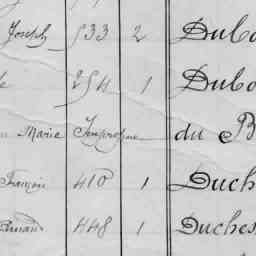 Joseph 533 2 Dubo
254 1 Dubo
Marie du B
François 410 1 Duch
448 1 Duches